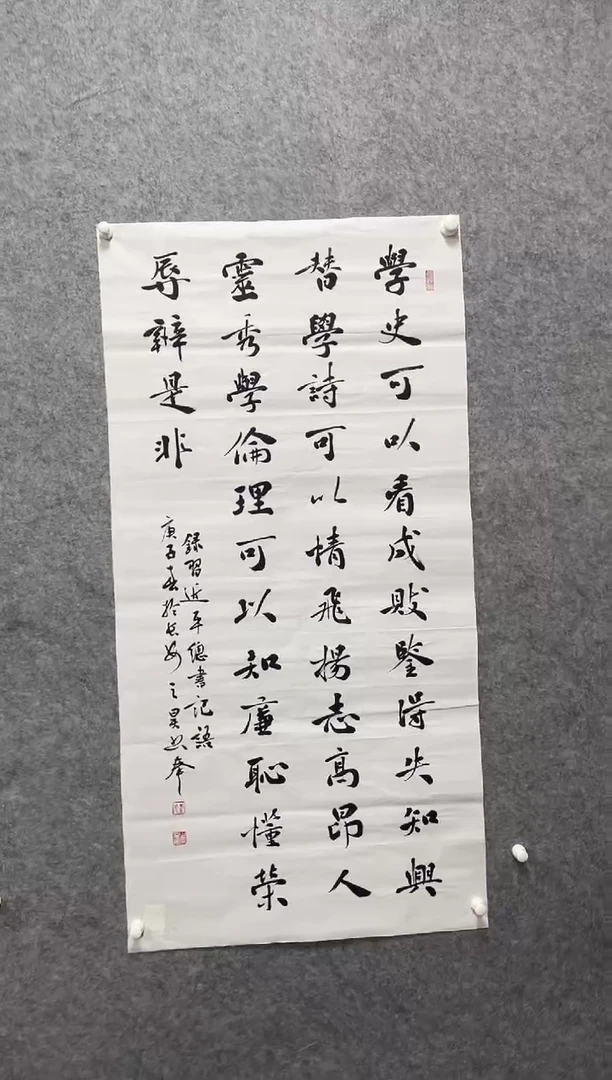 學史可以看成敗鑒得失知興
替學詩可以情飛揚志高昂人
靈秀學倫理可以知廉恥懂榮
辱辨是非
錄習近平總書記語
庚子春於長安